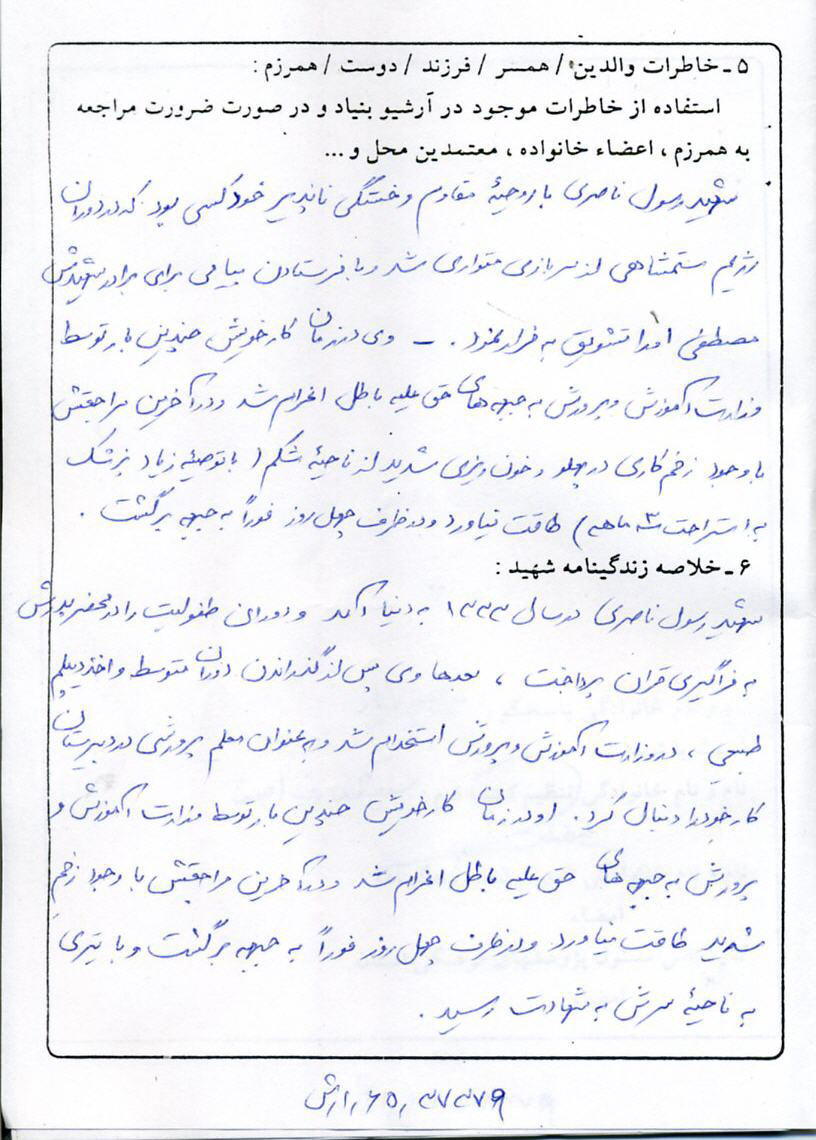 ۵ ـ خاطرات والدین / همسر / فرزند / دوست / همرزم :
استفاده از خاطرات موجود در آرشیو بنیاد و در صورت ضرورت مراجعه
به همرزم ، اعضاء خانواده ، معتمدین محل و ...
شهید رسول ناصری با روحیهٔ مقاوم و خستگی ناپذیر خود کسی بود که در دوران
رژیم ستمشاهی از سربازی متواری شد و با فرستادن پیامی برای برادر شهیدش
مصطفی او را تشویق به فرار نمود . ـ وی در زمان کار خویش چندین بار توسط
وزارت آموزش و پرورش به جبهه های حق علیه باطل اعزام شد و در آخرین مراجعتش
با وجود زخم کاری در پهلو و خون ریزی شدید از ناحیهٔ شکم ( با توصیهٔ زیاد پزشک
به استراحت ۳ ماهه ) طاقت نیاورد و در ظرف چهل روز فوراً به جبهه برگشت .
۶ ـ خلاصه زندگینامه شهید :
شهید رسول ناصری در سال ۱۳۳۳ به دنیا آمد و دوران طفولیت را در محضر پدرش
به فراگیری قران پرداخت ، بعدها وی پس از گذراندن دوران متوسط و اخذ دیپلم
طبیعی ، در وزارت آموزش و پرورش استخدام شد و به عنوان معلم پرورشی در دبیرستان
کار خود را دنبال کرد . او در زمان کار خویش چندین بار توسط وزارت آموزش و
پرورش به جبهه های حق علیه باطل اعزام شد و در آخرین مراجعتش با وجود زخم
شدید طاقت نیاورد و در ظرف چهل روز فوراً به جبهه برگشت و با تیری
به ناحیهٔ سرش به شهادت رسید .